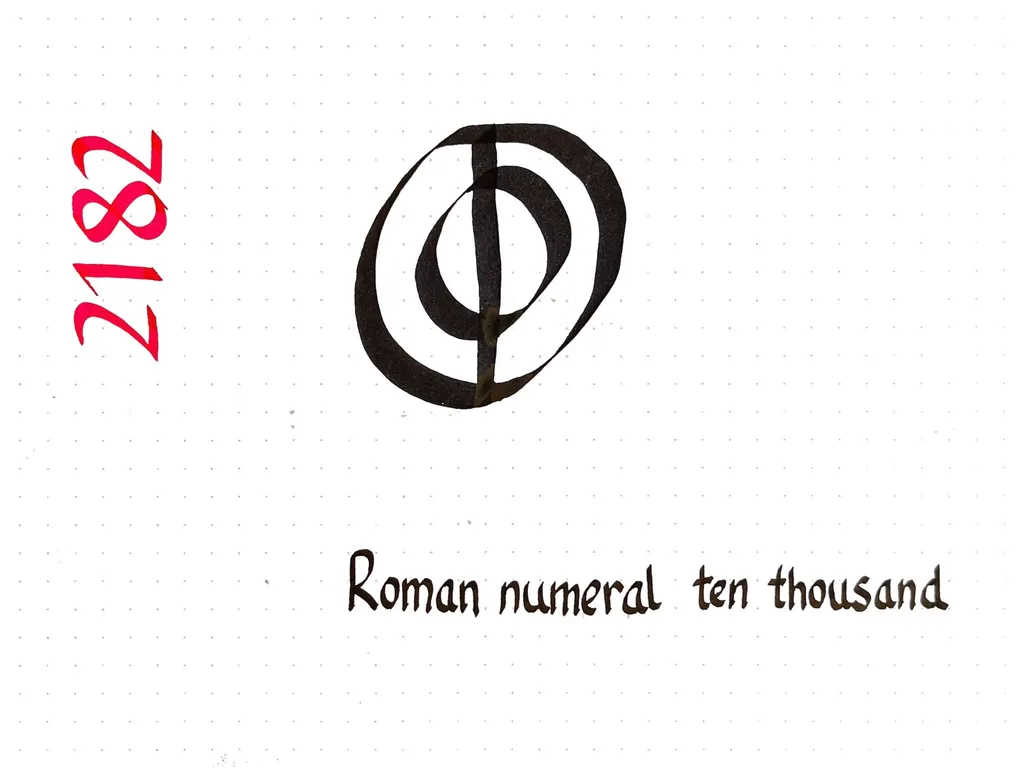 2182
ↂ
Roman numeral ten thousand